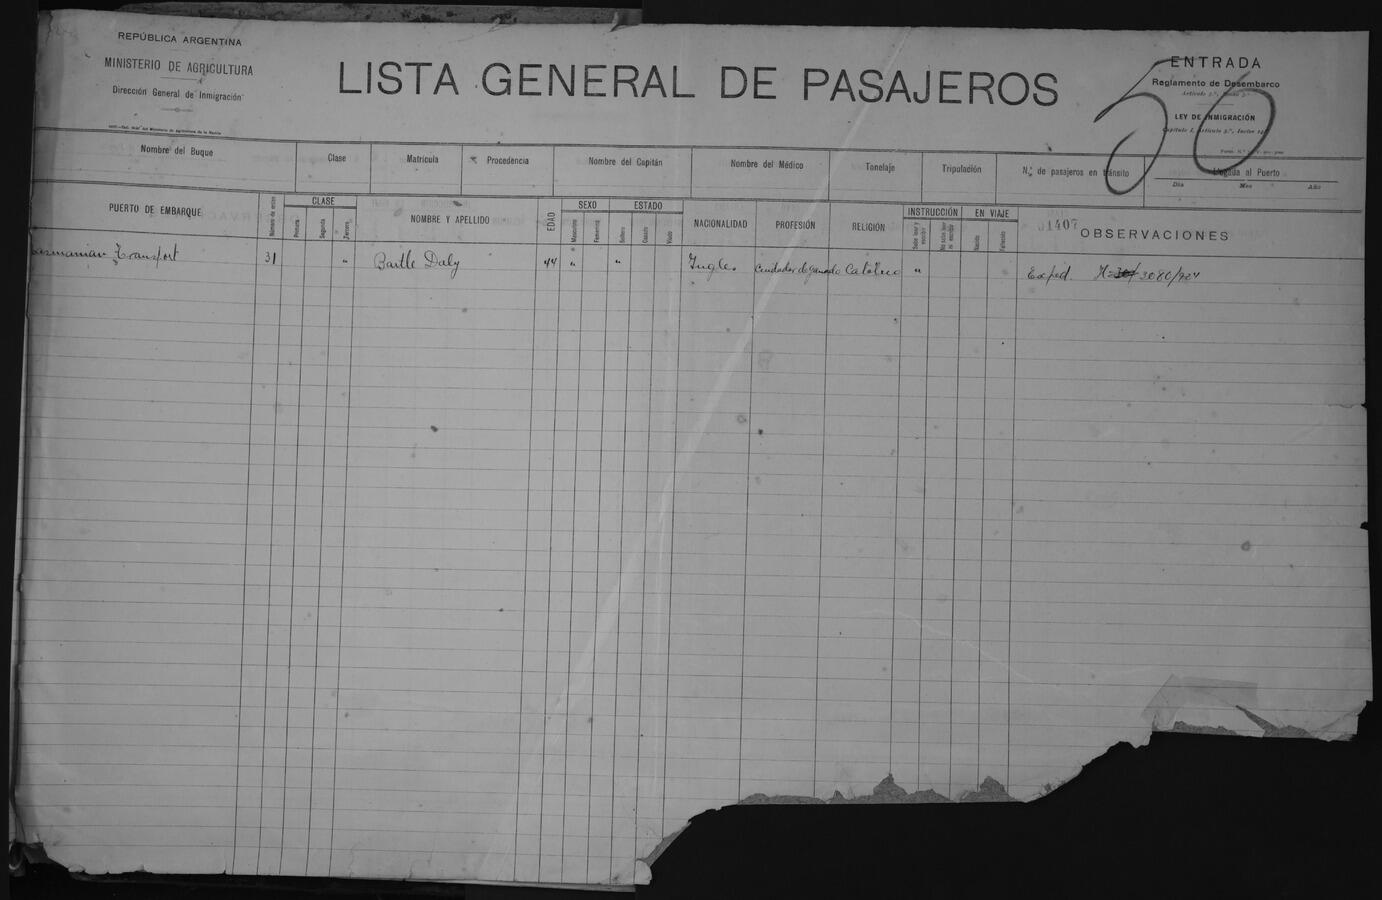 REPÚBLICA ARGENTINA
MINISTERIO DE AGRICULTURA
Dirección General de Inmigración
LISTA GENERAL DE PASAJEROS
ENTRADA
Reglamento de Desembarco
LEY DE INMIGRACIÓN
50
Nombre del Buque Clase Matrícula Procedencia Nombre del Capitán Nombre del Médico Tonelaje Tripulación N.º de pasajeros en tránsito Llegada al Puerto
Día Mes Año
PUERTO DE EMBARQUE CLASE NOMBRE Y APELLIDO EDAD SEXO ESTADO NACIONALIDAD PROFESIÓN RELIGIÓN INSTRUCCIÓN EN VIAJE OBSERVACIONES
Primera Segunda Tercera Masculino Femenino Soltero Casado Viudo Nacido Fallecido
1407
Transport 31 " Bartle Daly 44 " " Ingles Cuidador de ganado Católico " Exped. 3080/904